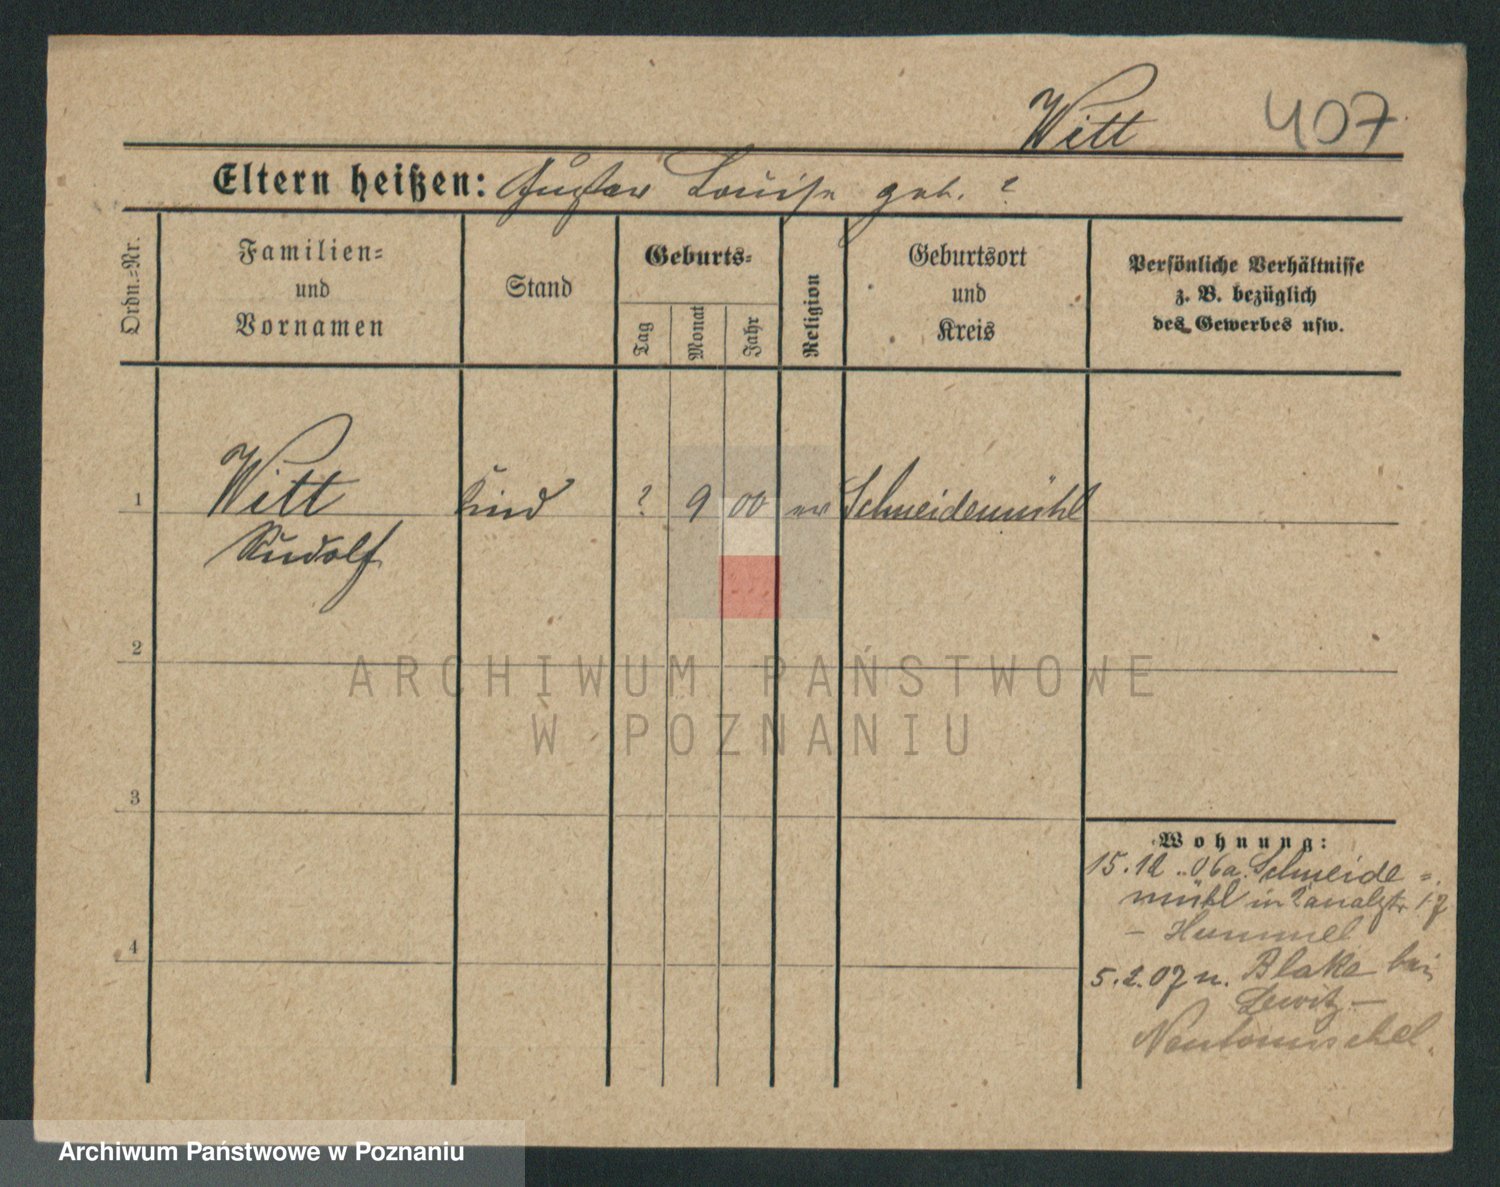 Witt 407
Eltern heißen: Gustav Louise geb. ?
Ordn.-Nr.
Familien-
und
Vornamen
Stand
Geburts-
Tag
Monat
Jahr
Religion
Geburtsort
und
Kreis
Persönliche Verhältnisse
z. B. bezüglich
des Gewerbes usw.
1 Witt Kind ? 9 00 ev Schneidemühl
Rudolf
2
3
4
Wohnung:
15.12..06 a. Schneide=
mühl in
- Hummel
5.2.07 n. Blake bei
-
Neutomischel.
ARCHIWUM PAŃSTWOWE
W POZNANIU
Archiwum Państwowe w Poznaniu